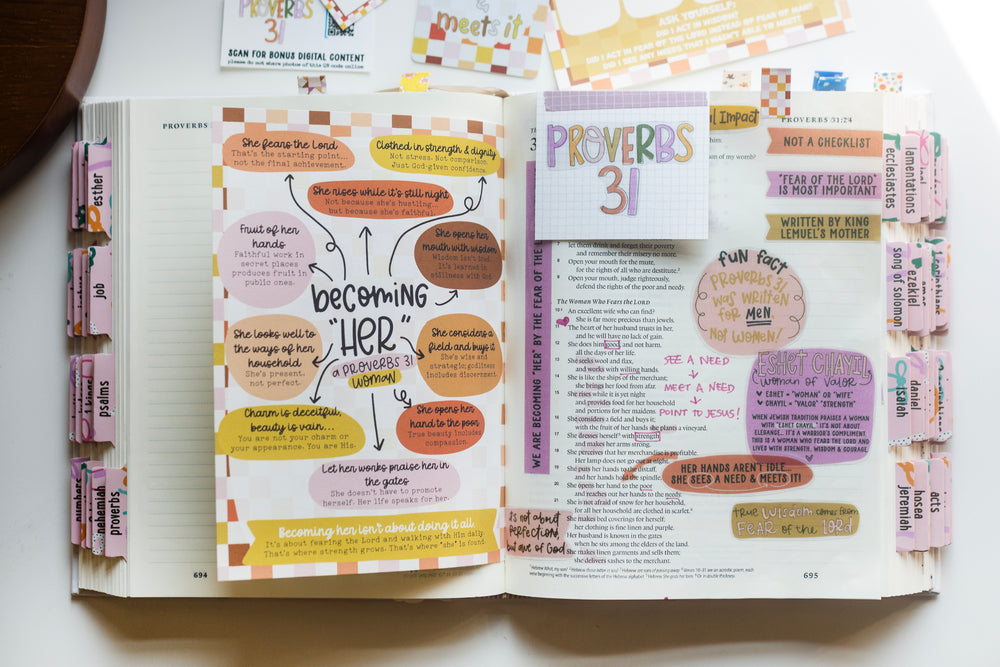 PROVERBS
31
SCAN FOR BONUS DIGITAL CONTENT
please do not share photos of this QR code online
& meets it
ASK YOURSELF:
DID I ACT IN WISDOM?
DID I ACT IN FEAR OF THE LORD INSTEAD OF FEAR OF MAN?
DID I SEE ANY NEEDS THAT I WASN'T ABLE TO MEET?
PROVERBS
She fears the Lord
That's the starting point...
not the final achievement.
Clothed in strength & dignity
Not stress. Not comparison.
Just God-given confidence.
She rises while it's still night
Not because she's hustling...
but because she's faithful.
Fruit of her
hands
Faithful work in
secret places
produces fruit in
public ones.
She opens her
mouth with wisdom
Wisdom isn't loud
It's learned in
stillness with God
becoming
"HER"
a PROVERBS 31
woman
She looks well to
the ways of her
household
She's present,
not perfect.
She considers a
field and buys it
She's wise and
strategic; godliness
includes discernment.
Charm is deceitful,
beauty is vain...
You are not your charm or
your appearance. You are His.
She opens her
hand to the poor
True beauty includes
compassion.
Let her works praise her in
the gates
She doesn't have to promote
herself. Her life speaks for her.
Becoming her isn't about doing it all
It's about fearing the Lord and walking with Him daily.
That's where strength grows. That's where "she" is found.
694
esther
job
psalms
1 kings
proverbs
nehemiah
numbers
PROVERBS 31:24
PROVERBS
31
Impact
of my womb?
NOT A CHECKLIST
"FEAR OF THE LORD"
IS MOST IMPORTANT
WRITTEN BY KING
LEMUEL'S MOTHER
WE ARE BECOMING "HER" BY THE FEAR OF THE
let them drink and forget their poverty
and remember their misery no more.
8 Open your mouth for the mute,
for the rights of all who are destitute.
9 Open your mouth, judge righteously,
defend the rights of the poor and needy.
The Woman Who Fears the LORD
10 An excellent wife who can find?
She is far more precious than jewels.
11 The heart of her husband trusts in her,
and he will have no lack of gain.
12 She does him good, and not harm,
all the days of her life.
13 She seeks wool and flax,
and works with willing hands.
14 She is like the ships of the merchant;
she brings her food from afar.
15 She rises while it is yet night
and provides food for her household
and portions for her maidens.
16 She considers a field and buys it;
with the fruit of her hands she plants a vineyard.
17 She dresses herself with strength
and makes her arms strong.
18 She perceives that her merchandise is profitable.
Her lamp does not go out at night.
19 She puts her hands to the distaff,
and her hands hold the spindle.
20 She opens her hand to the poor
and reaches out her hands to the needy.
21 She is not afraid of snow for her household,
for all her household are clothed in scarlet.
She makes bed coverings for herself;
her clothing is fine linen and purple.
Her husband is known in the gates
when he sits among the elders of the land.
She makes linen garments and sells them;
she delivers sashes to the merchant.
FUN FACT
PROVERBS 31
WAS WRITTEN
FOR MEN,
NOT WOMEN!
SEE A NEED
MEET A NEED
POINT TO JESUS!
ESHET CHAYIL
woman of valor
ESHET = WOMAN" OR "WIFE"
CHAYIL = "VALOR" "STRENGTH"
WHEN JEWISH TRADITION PRAISES A WOMAN
WITH "ESHET CHAYIL", IT'S NOT ABOUT
ELEGANCE... IT'S A WARRIOR'S COMPLIMENT.
THIS IS A WOMAN WHO FEARS THE LORD AND
LIVES WITH STRENGTH, WISDOM & COURAGE.
HER HANDS AREN'T IDLE...
SHE SEES A NEED & MEETS IT!
true wisdom comes from
FEAR of the LORD
it's not about
perfection,
but awe of God
695
ecclesiastes
lamentations
song of solomon
ezekiel
isaiah
daniel
jeremiah
hosea
acts